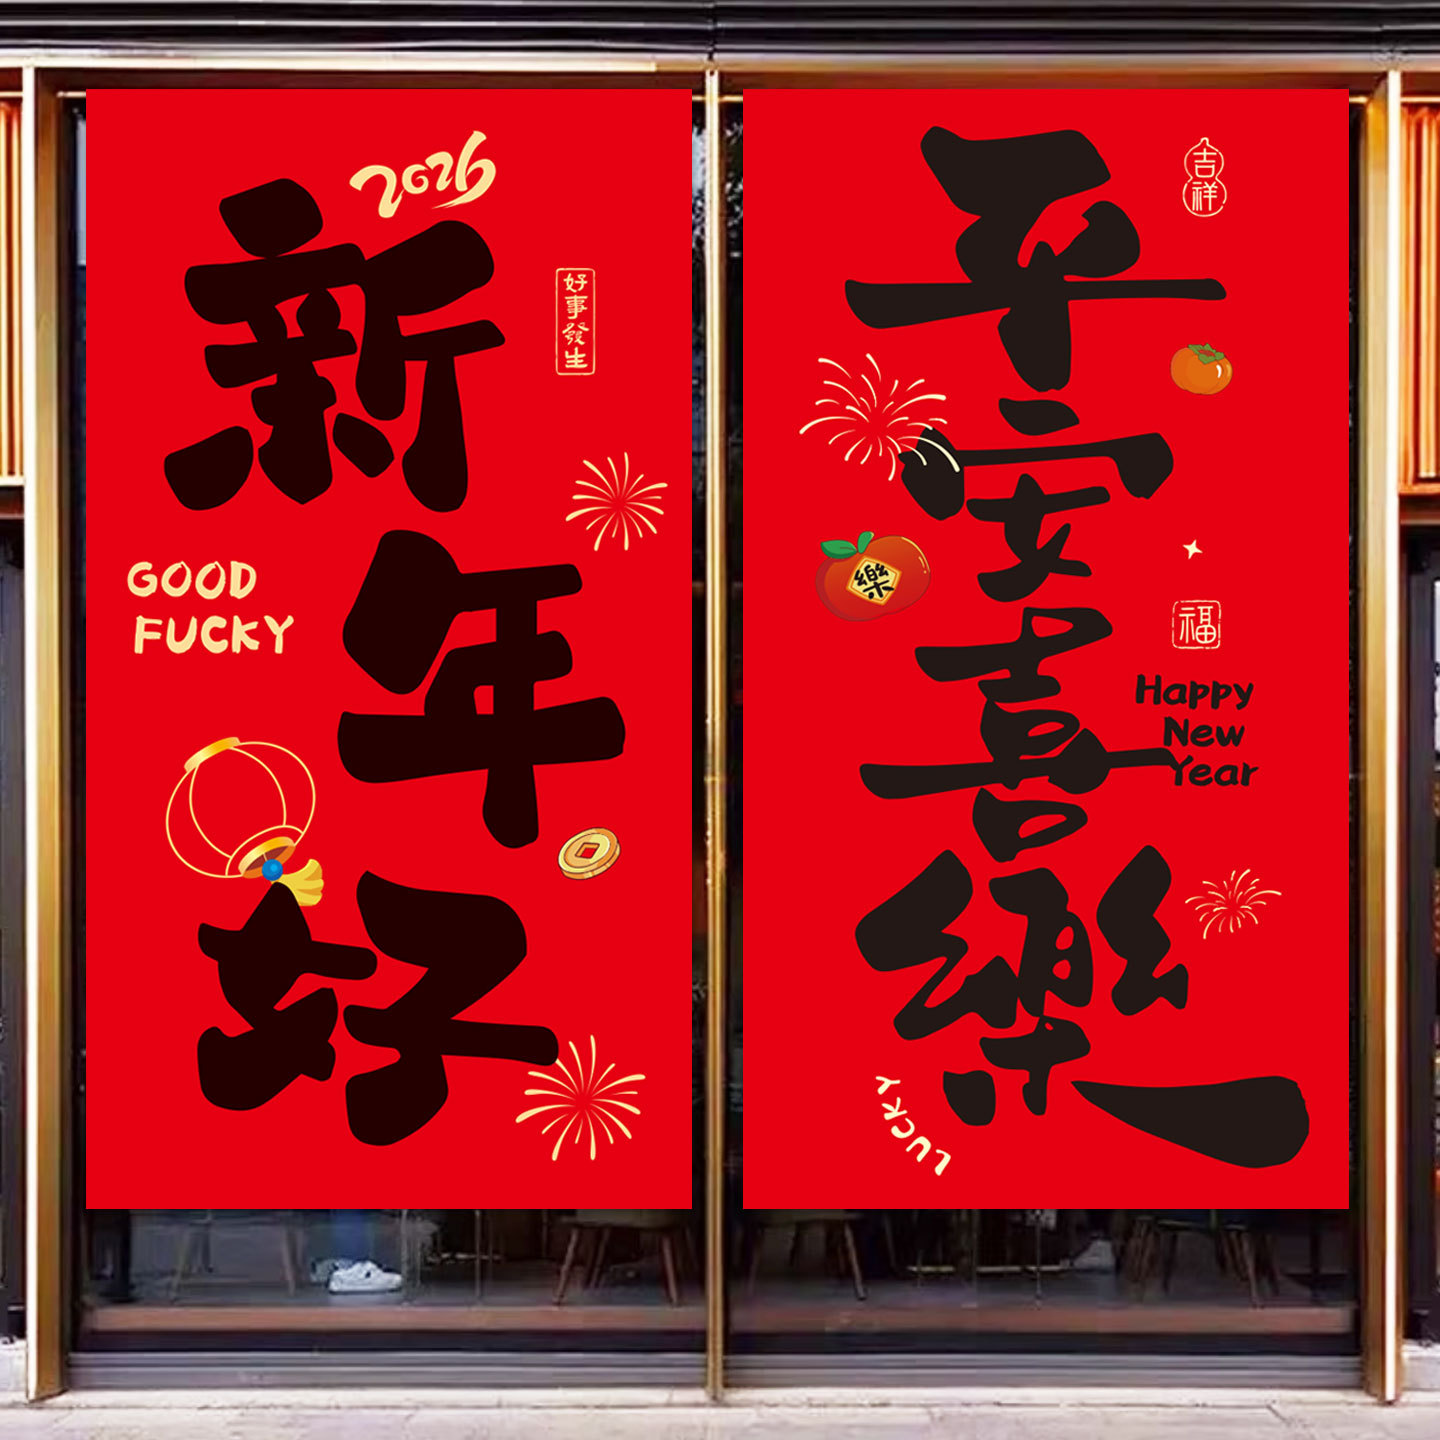 2026
新年好
好事發生
GOOD
FUCKY
平安喜樂
吉祥
樂
福
Happy
New
Year
LUCKY